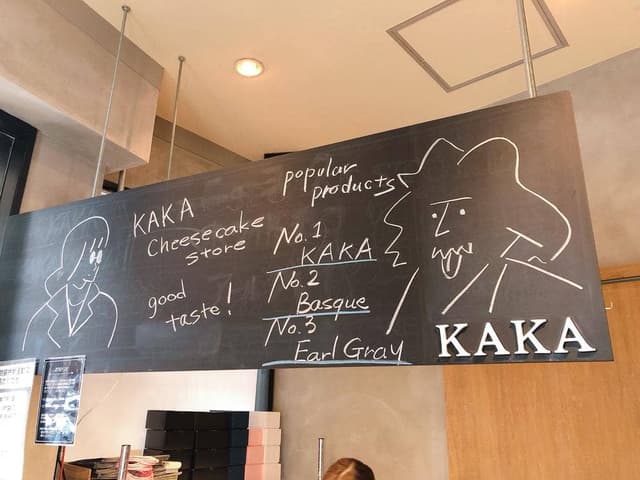 KAKA
Cheesecake
store
good
taste!
popular
products
No.1
KAKA
No.2
Basque
No.3
Earl Gray
KAKA